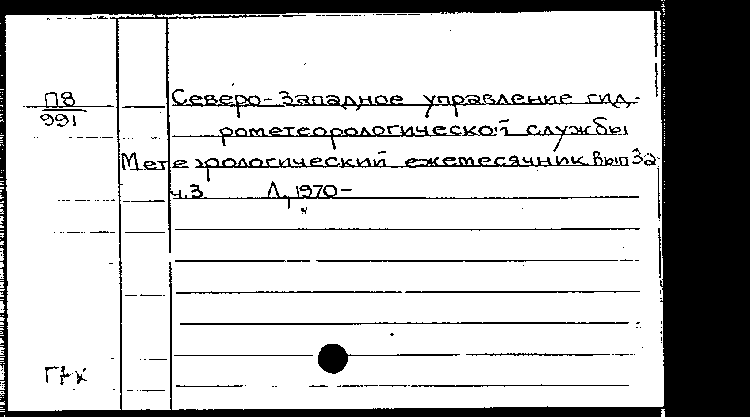 П8
991
Северо-Западное управление гид-
рометеорологической службы
Метеорологический ежемесячник Вып 3а
ч.3 Л, 1970-
ГК